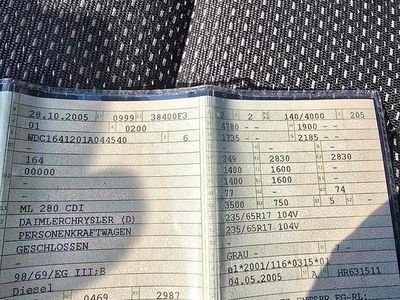 28.10.2005 0999 38400F3
01 0200
WDC1641201A044540 6
- -
164
00000
- -
ML 280 CDI
DAIMLERCHRYSLER (D)
PERSONENKRAFTWAGEN
GESCHLOSSEN
-
98/69/EG III;B
Diesel
0469 2987
2 2 140/4000 205
4780 - - 1900 -
1735 - - 2185 - -
- -
249 2830 2830
1400 1600 -
1400 1600 -
77 - - 74
3500 750 5 -
235/65R17 104V
235/65R17 104V
- -
GRAU - - 7
e1*2001/116*0315*01
04.05.2005 HR631511